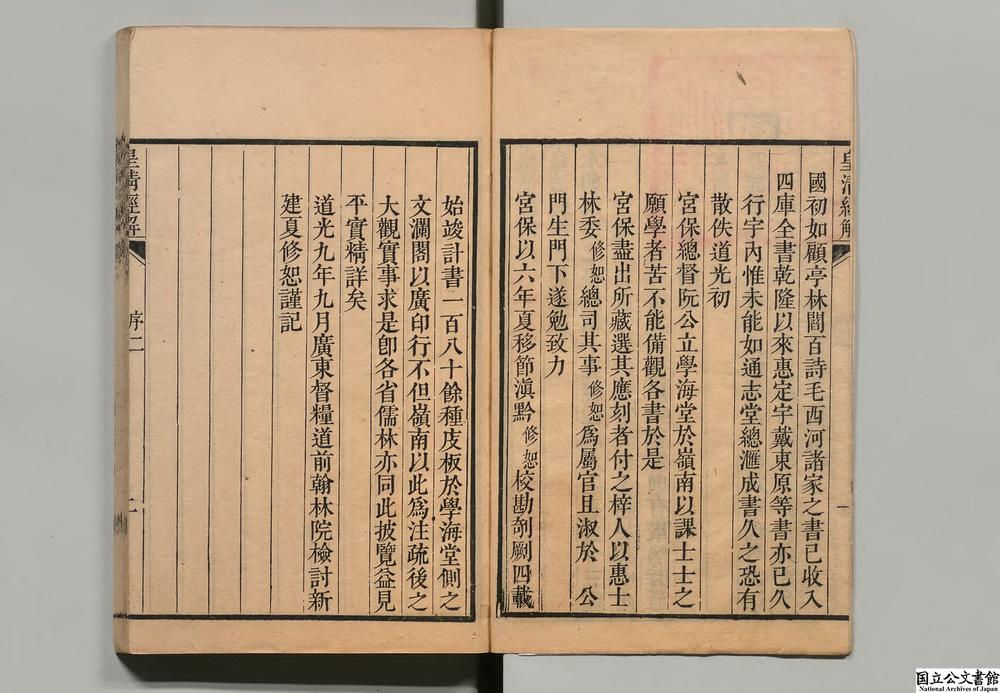 皇清經解
國初如顧亭林閻百詩毛西河諸家之書已收入
四庫全書乾隆以來惠定宇戴東原等書亦已久
行宇內惟未能如通志堂總滙成書久之恐有
散佚道光初
宮保總督阮公立學海堂於嶺南以課士士之
願學者苦不能備觀各書於是
宮保盡出所藏選其應刻者付之梓人以惠士
林委修恕總司其事修恕爲屬官且淑於 公
門生門下遂勉致力
宮保以六年夏移節滇黔修恕校勘剞劂四載
始竣計書一百八十餘種庋板於學海堂側之
文瀾閣以廣印行不但嶺南以此爲注疏後之
大觀實事求是卽各省儒林亦同此披覽益見
平實精詳矣
道光九年九月廣東督糧道前翰林院檢討新
建夏修恕謹記
皇清經解
序二
二
国立公文書館
National Archives of Japan